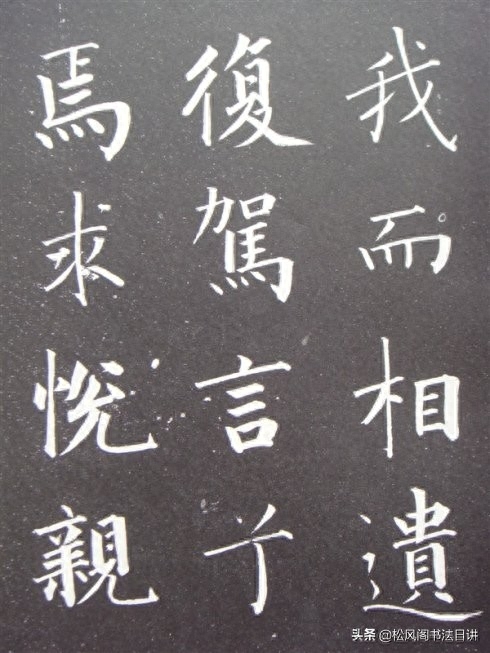 我而相遺
復駕言兮
焉求悦親
头条 @松风阁书法日讲